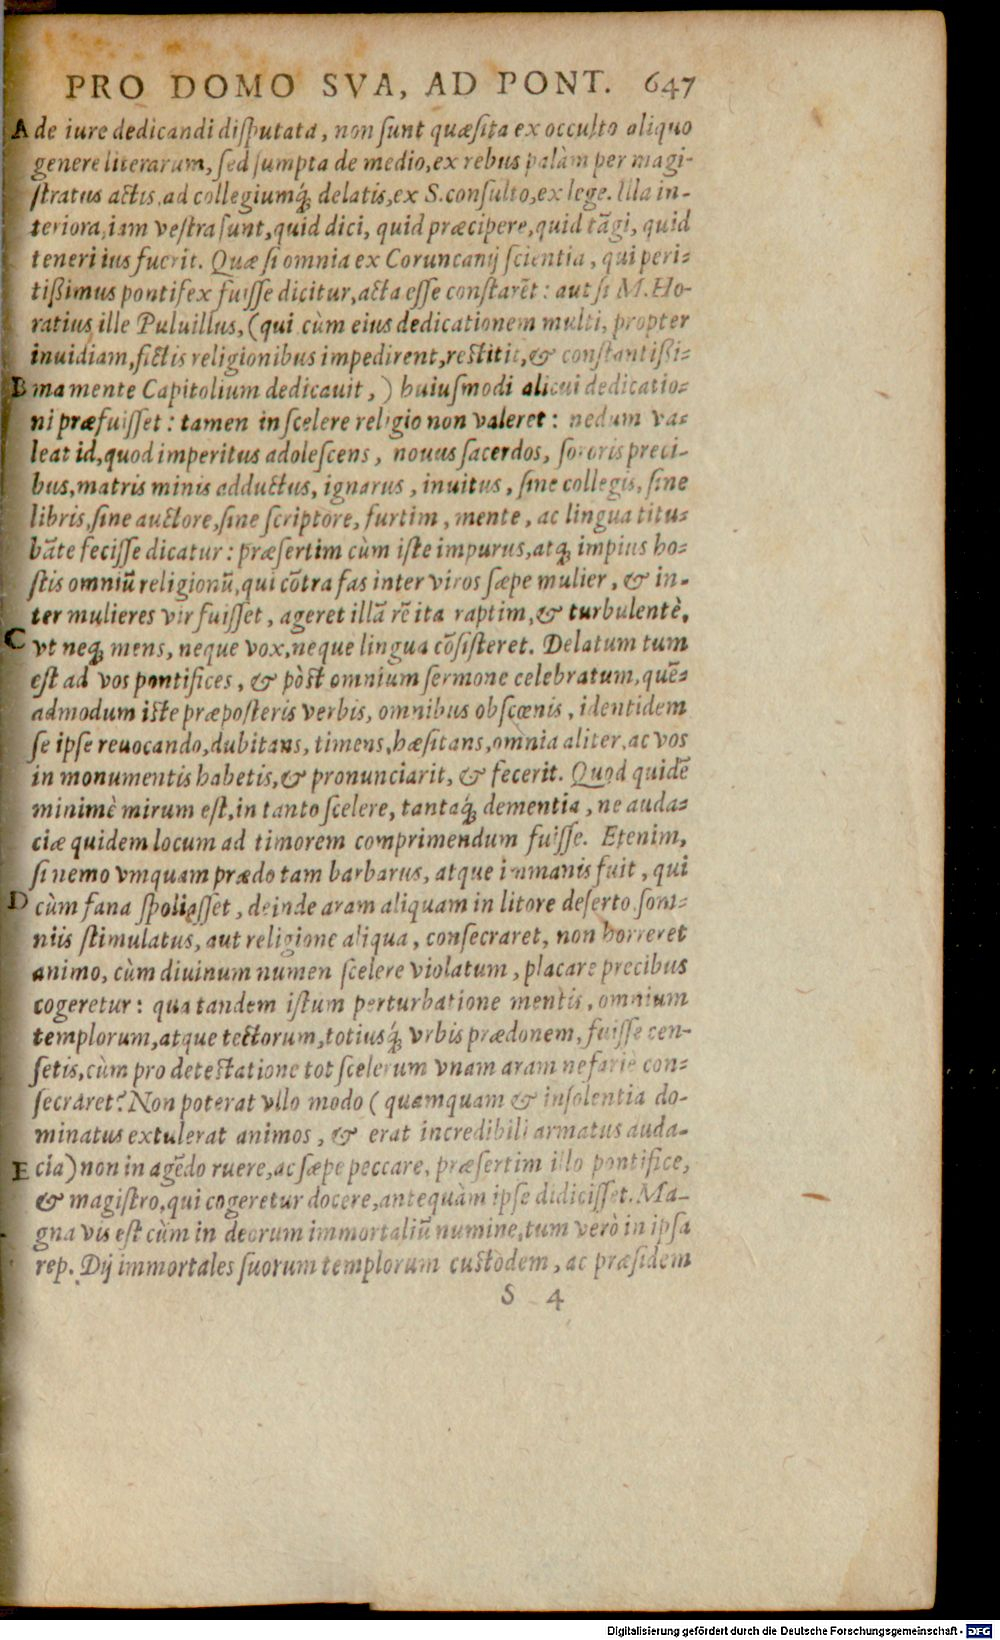 PRO DOMO SVA, AD PONT. 647
A de iure dedicandi diſputata, non ſunt quæſita ex occulto aliquo
genere literarum, ſed ſumpta de medio, ex rebus palàm per magi-
ſtratus actis, ad collegiumq́; delatis, ex S. conſulto, ex lege. Illa in-
teriora, iam veſtra ſunt, quid dici, quid præcipere, quid tãgi, quid
teneri ius fuerit. Quæ ſi omnia ex Coruncanij ſcientia, qui peri-
tißimus pontifex fuiſſe dicitur, acta eſſe conſtarẽt: aut ſi M. Ho-
ratius ille Puluillus, (qui cùm eius dedicationem multi, propter
inuidiam, fictis religionibus impedirent, reſtitit, & conſtantißi-
B ma mente Capitolium dedicauit,) huiuſmodi alicui dedicatio-
ni præfuiſſet: tamen in ſcelere religio non valeret: nedum va-
leat id, quod imperitus adoleſcens, nouus ſacerdos, ſororis preci-
bus, matris minis adductus, ignarus, inuitus, ſine collegis, ſine
libris, ſine auctore, ſine ſcriptore, furtim, mente, ac lingua titu-
bãte feciſſe dicatur: præſertim cùm iſte impurus, atq; impius ho-
ſtis omniũ religionũ, qui cõtra fas inter viros ſæpe mulier, & in-
ter mulieres vir fuiſſet, ageret illã rẽ ita raptim, & turbulentè,
C vt neq; mens, neque vox, neque lingua cõſiſteret. Delatum tum
eſt ad vos pontifices, & pòſt omnium ſermone celebratum, quẽ-
admodum iſte præpoſteris verbis, omnibus obſcœnis, identidem
ſe ipſe reuocando, dubitans, timens, hæſitans, omnia aliter, ac vos
in monumentis habetis, & pronunciarit, & fecerit. Quod quidẽ
minimè mirum eſt, in tanto ſcelere, tantaq́; dementia, ne auda-
ciæ quidem locum ad timorem comprimendum fuiſſe. Etenim,
ſi nemo vmquam prædo tam barbarus, atque immanis fuit, qui
D cùm fana ſpoliaſſet, deinde aram aliquam in litore deſerto ſom-
niis ſtimulatus, aut religione aliqua, conſecraret, non horreret
animo, cùm diuinum numen ſcelere violatum, placare precibus
cogeretur: qua tandem iſtum perturbatione mentis, omnium
templorum, atque tectorum, totiusq́; vrbis prædonem, fuiſſe cen-
ſetis, cùm pro deteſtatione tot ſcelerum vnam aram nefariè con-
ſecraret? Non poterat vllo modo (quamquam & inſolentia do-
minatus extulerat animos, & erat incredibili armatus auda-
E cia) non in agẽdo ruere, ac ſæpe peccare, præſertim illo pontifice,
& magiſtro, qui cogeretur docere, antequàm ipſe didiciſſet. Ma-
gna vis eſt cùm in deorum immortaliũ numine, tum verò in ipſa
rep. Dij immortales ſuorum templorum cuſtodem, ac præſidem
S 4
Digitalisierung gefördert durch die Deutsche Forschungsgemeinschaft - DFG